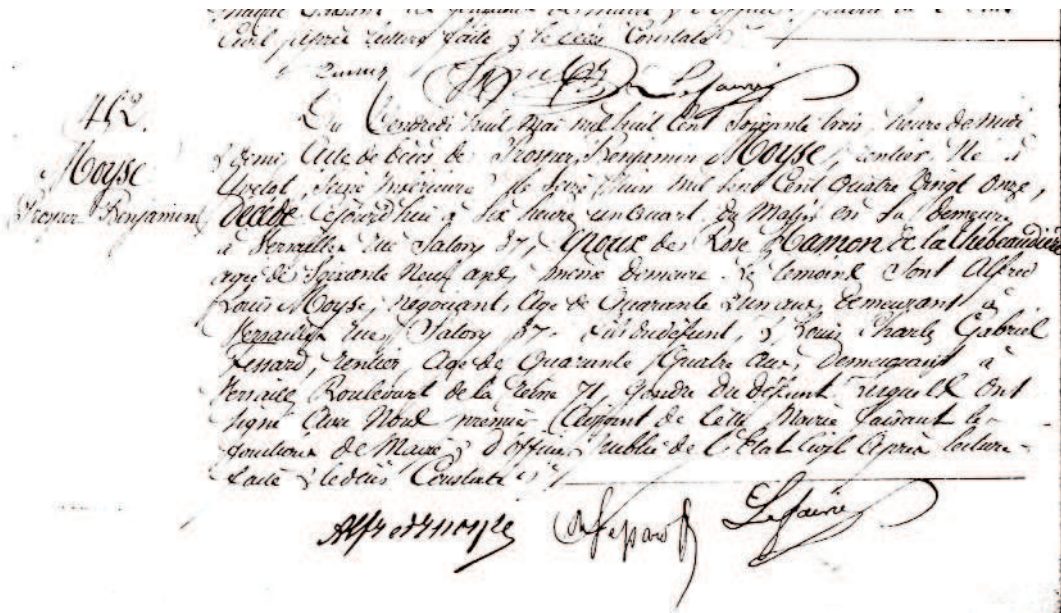 Civil, après lecture faite & le décès Constaté
Lefaivre
452.
Moyse
Prosper Benjamin
Du Vendredi huit Mai mil huit Cent Soixante trois, heure de midi
& demi, Acte de décès de Prosper Benjamin Moyse, rentier, Né à
Yvetot, Seine Inférieure, le Juin mil Sept Cent Quatre Vingt Onze,
décédé Cejourd'hui à Six heures un quart du Matin en Sa demeure
à Versailles rue Satory 37, Epoux de Rose Hamon de la Thébaudière
agée de Soixante Neuf ans, même demeure. Les temoins Sont Alfred
Louis Moyse, négociant, Agé de Quarante un ans, demeurant à
Versailles rue Satory 37. fils du défunt, & Louis Charles Gabriel
Fessard, rentier, Agé de Quarante Quatre ans, Demeurant à
Versailles Boulevart de la Reine 71, gendre du défunt lesquels Ont
Signé Avec Nous premier Adjoint de Cette Mairie faisant les
fonctions de Maire & d'officier public de l'Etat Civil Après lecture
faite & le décès Constaté
Alfred Moyse Fessard Lefaivre